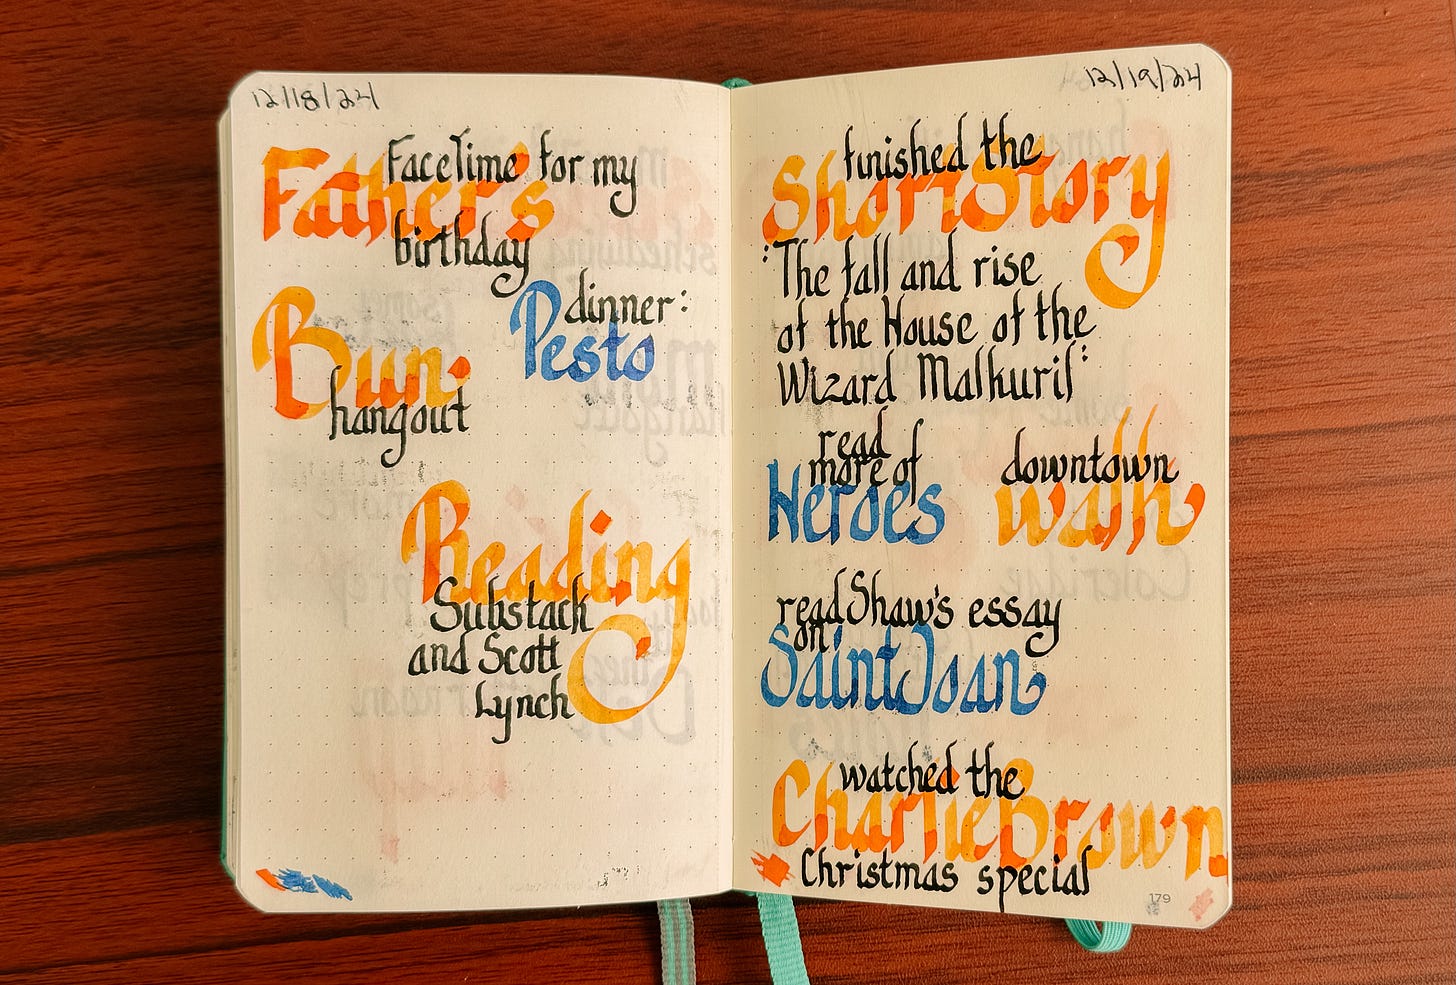 12/18/24
FaceTime for my
Father's
birthday
dinner:
Pesto
Bun.
hangout
Reading
Substack
and Scott
Lynch
12/19/24
finished the
Short Story
:The fall and rise
of the House of the
Wizard Malkuril:
read
more of
Heroes
downtown
walk
read Shaw's essay
on
Saint Joan
watched the
Charlie Brown
Christmas special
179